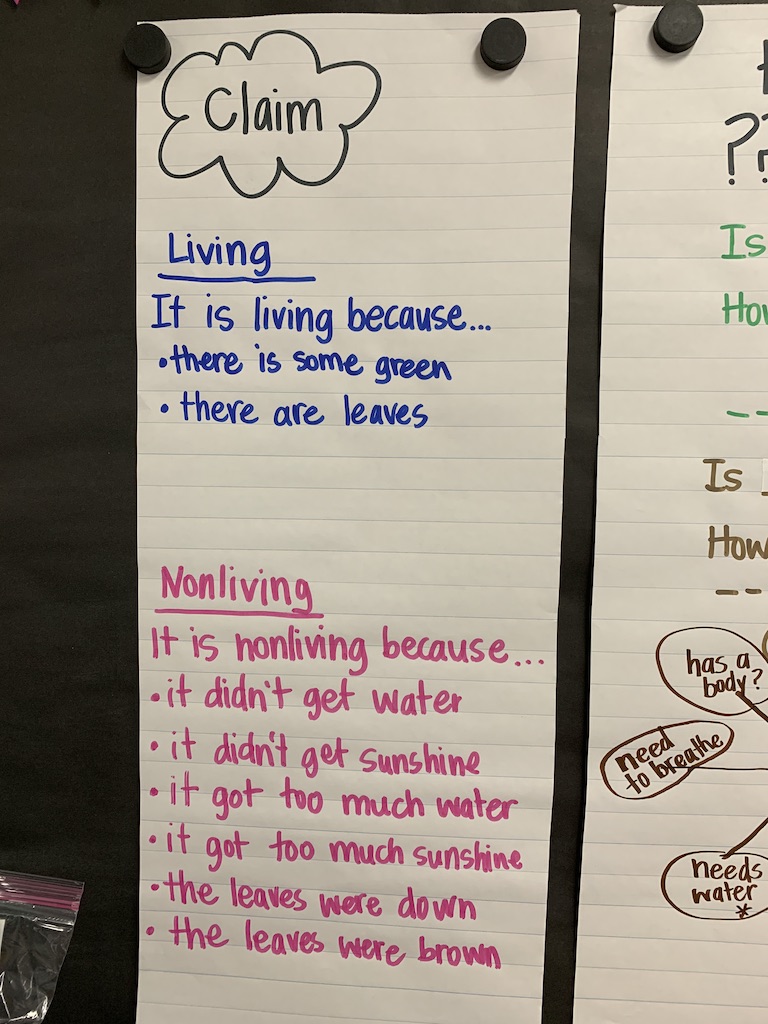 Claim
Living
It is living because...
• there is some green
• there are leaves
Nonliving
It is nonliving because...
• it didn't get water
• it didn't get sunshine
• it got too much water
• it got too much sunshine
• the leaves were down
• the leaves were brown
??
Is
How
--
Is
How
--
has a
body?
need
to breathe
needs
water
*